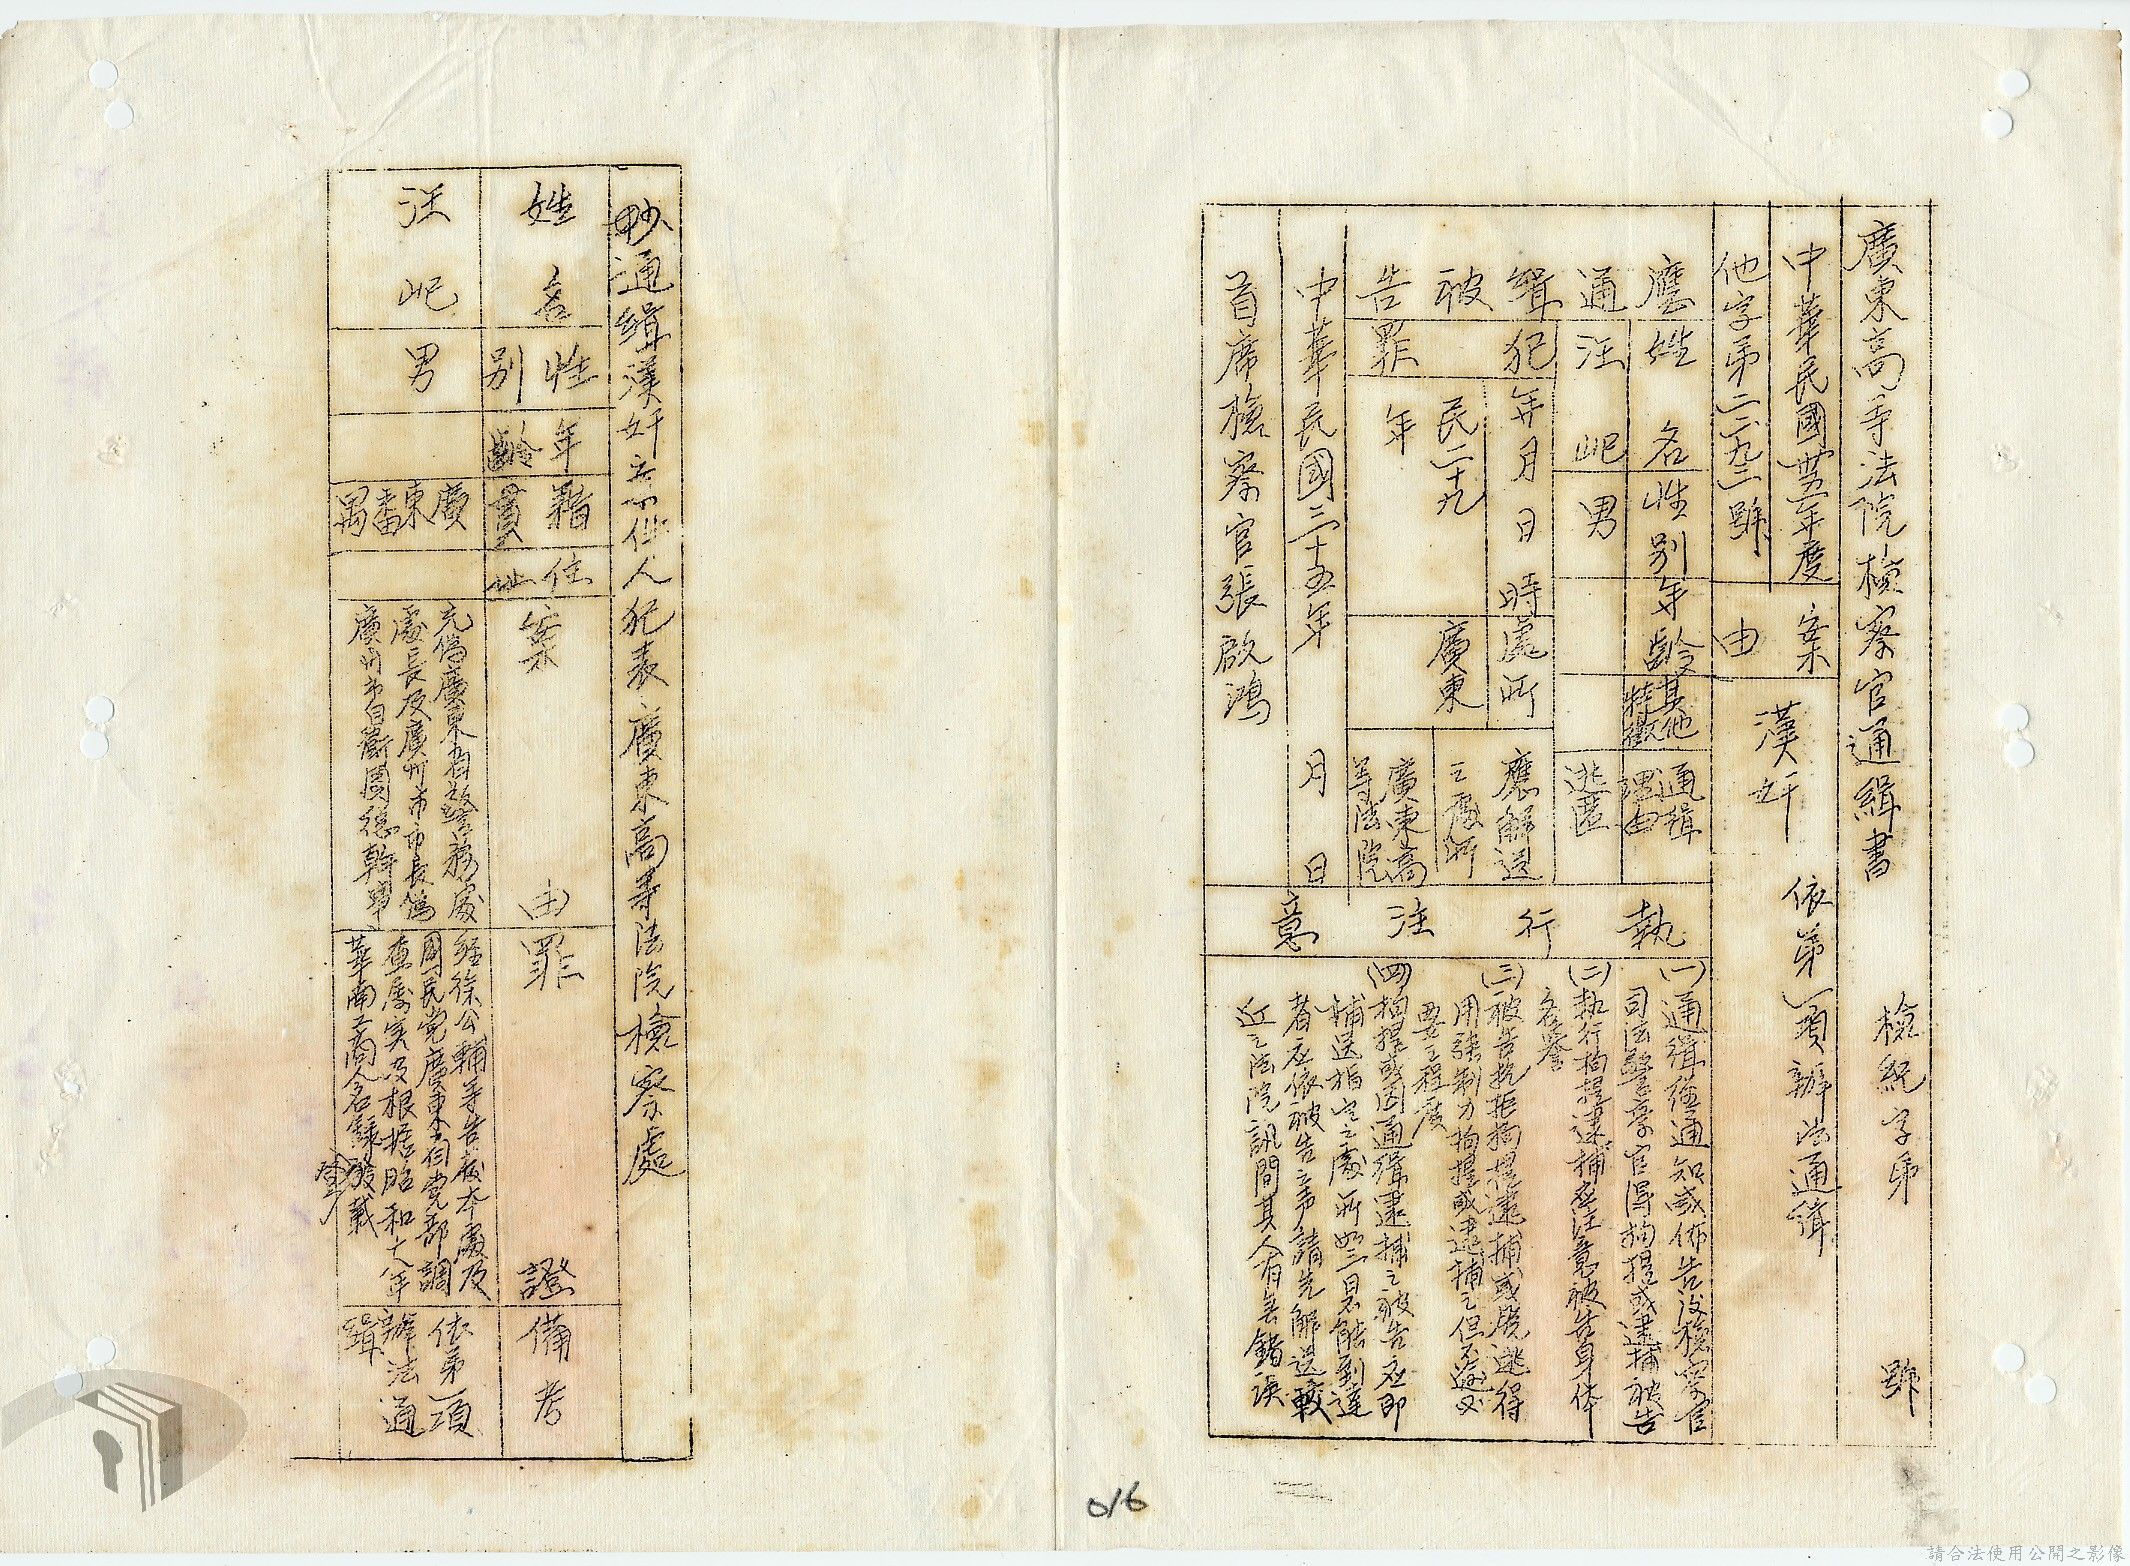 廣東高等法院檢察官通緝書 檢紀字第 號
中華民國卅五年度
他字第二二九二號
案由
漢奸 依第一項辦法通緝
應通緝被告
姓名
汪屺
性別
男
年齡
其他特徵
通緝理由
逃匿
犯罪
年月日時
民二十九年
處所
廣東
應解送之處所
廣東高等法院
中華民國三十五年 月 日
首席檢察官張啟鴻
執行注意
(一)通緝經通知或佈告後檢察官
司法警察官得拘提或逮捕被告
(二)執行拘提逮捕應注意被告身体
名譽
(三)被告抗拒拘提逮捕或脫逃得
用強制力拘提或逮捕之但不逾必
要之程度
(四)拘提或因通緝逮捕之被告應即
補送指定之處所如三日不能到達
者應依被告之声請先解送較
近之法院訊問其人有無錯誤
通緝漢奸
人犯表 廣東高等法院檢察處
姓名
汪屺
性別
男
年齡
籍貫
廣東番禺
住址
案由
充偽廣東省警務處
處長及廣州市市長偽
廣州市自衛團總幹事
罪證
經徐公輔等告發本處及
國民党廣東省党部調
查屬实及根据昭和十八年
華南工商人名錄發載
備考
依第一項
辦法通
緝
016
請合法使用公開之影像